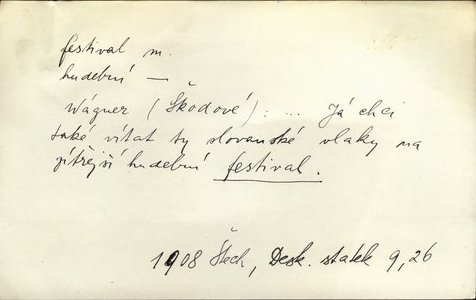 festival m.
hudební —
Wágner (Škodové): ... Já chci
také vítat ty slovanské vlaky na
zítřejší hudební festival.
1908 Štech, Desk. statek 9, 26